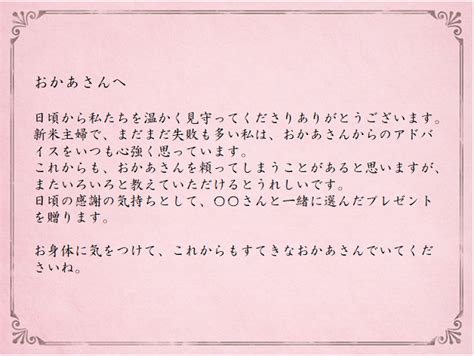 おかあさんへ
日頃から私たちを温かく見守ってくださりありがとうございます。
新米主婦で、まだまだ失敗も多い私は、おかあさんからのアドバ
イスをいつも心強く思っています。
これからも、おかあさんを頼ってしまうことがあると思いますが、
またいろいろと教えていただけるとうれしいです。
日頃の感謝の気持ちとして、〇〇さんと一緒に選んだプレゼント
を贈ります。
お身体に気をつけて、これからもすてきなおかあさんでいてくだ
さいね。